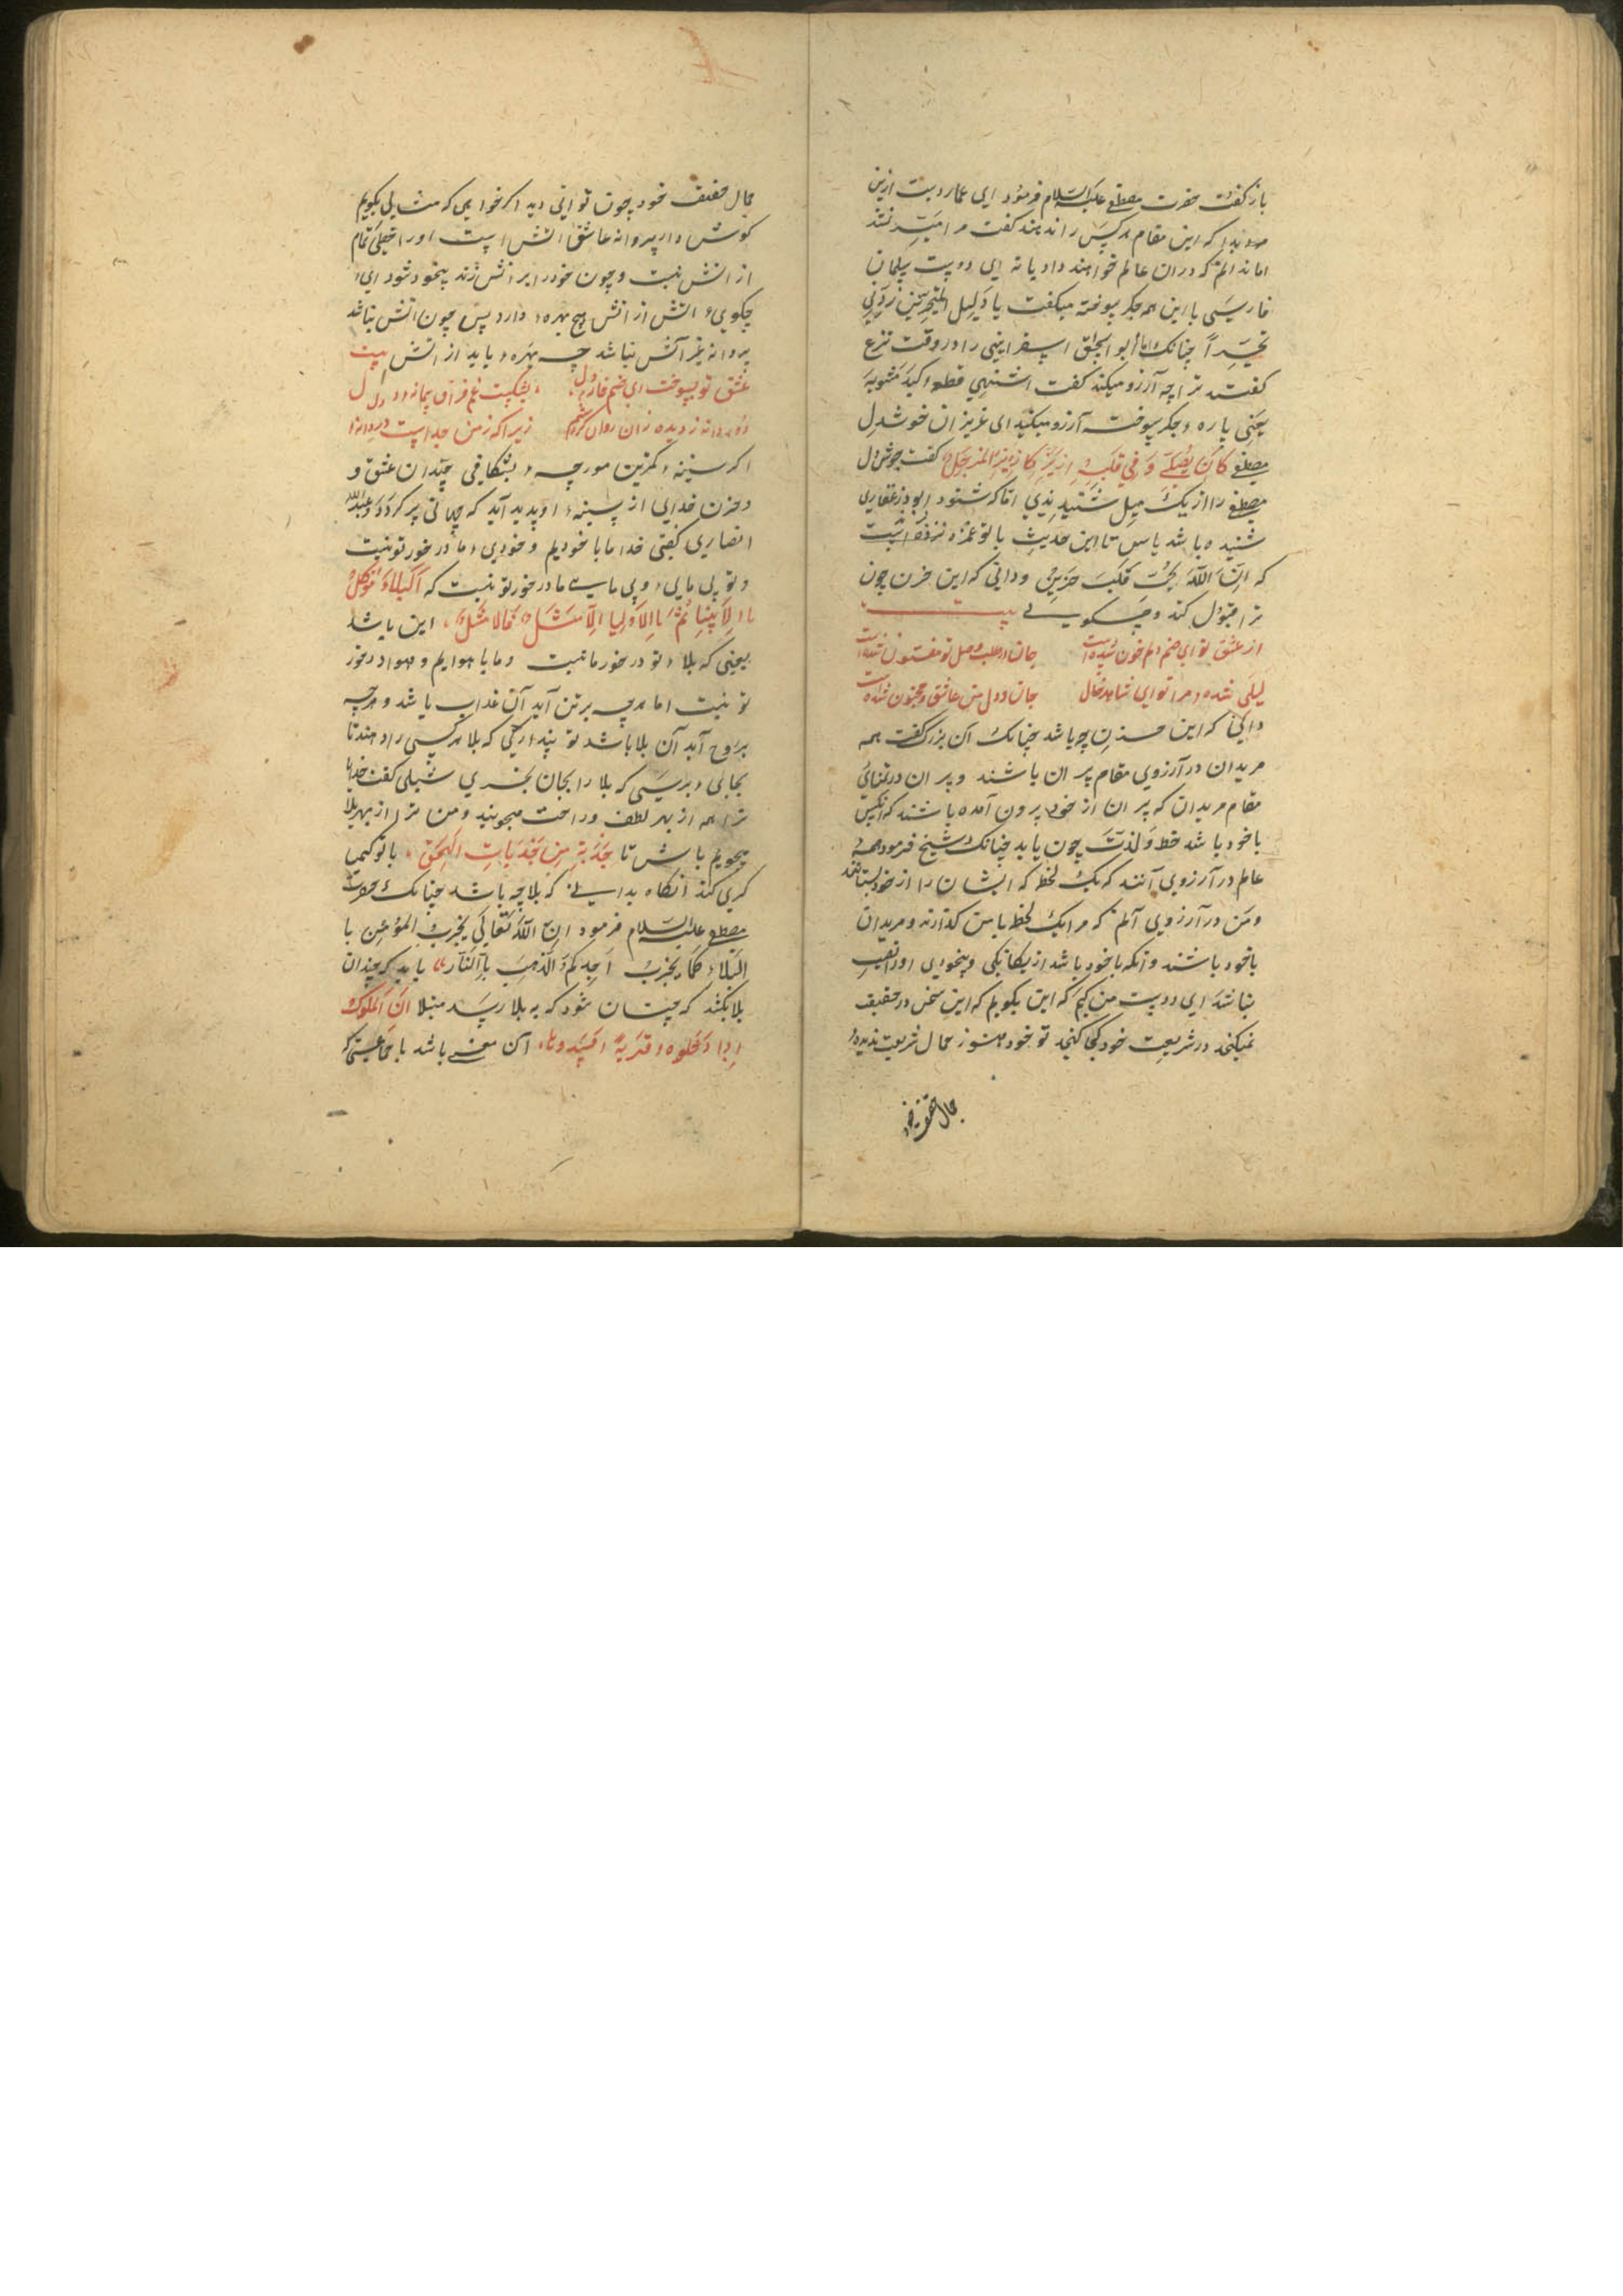 باز گفت حضرت مصطفی علیه السلام فرمود ای عمار دست ازین
مدار که این مقام هر کس را ندهند گفت مرا میسر نشد
اما ندانم که در آن عالم خواهند داد یا نه ای دوست سلمان
فارسی با این همه جگر سوخته میگفت یا دلیل المتحیرین زدنی
تحیراً چنانک ابو اسحق اسفراینی را در وقت نزع
گفتند ترا چه آرزو میکند گفت اشتهی قطعه کبد مشویه
یعنی پاره جگر سوخته آرزو میکند ای عزیز از خوش دل
مصطفی کان یصلی و فی قلبه ازیز کازیز المرجل گفت جوش دل
مصطفی را از یک میل شنیدندی اما که شنود ابوذر غفاری
شنیده باشد باش تا این حدیث با تو غمزه زند
که ان الله یحب قلب حزین و دانی که این حزن چون
ترا قبول کند و چه گویی بیت
از عشق تو ای صنم دلم خون شده است جان در طلب وصل تو مفتون شده است
لیلی شده مرا تو ای شاهد جان و دل من عاشق و مجنون شده است
دانی که این حزن چه باشد چنانک آن بزرگ گفت همه
مریدان در آرزوی مقام پیران باشند و پیران در تمنای
مقام مریدان که پیران از خود بیرون آمده باشند که آنکس
با خود باشد حظ و لذت چون یابد چنانک شیخ فرمود همه
عالم در آرزوی آنند که یک لحظه که ایشان را از خود بستانند
و من در آرزوی آنم که مرا یک لحظه با من گذارند و مریدان
با خود باشند و آنکه با خود باشد از یگانگی و بیخودی او را نصیب
نباشد ای دوست من کیم که این بگویم که این سخن در حقیقت
نمیگنجد در شریعت خود کجا گنجد تو خود هنوز جمال شریعت ندیده
جمال حقیقت خود
جمال حقیقت خود چون توانی دید اگر خواهی که مثالی بگویم
گوش دار پروانه عاشق آتش است او را حظی تمام
از آتش نیست و چون خود را بر آتش زند بیخود شود ای
چگویی آتش از آتش هیچ بهره دارد پس چون آتش نباشد
پروانه غیر آتش نباشد چه بهره یابد از آتش بیت
عشق تو بسوخت ای صنم خانه دل بشکست غم فراق پیمانه دل
دردانه ز دیده زان روان کردستم زیرا که ز من جداست دردانه
اگر سینه کمترین مورچه بشکافی چندان عشق و
حزن خدایی از سینه او پدید آید که جهانی پر کردد عبدالله
انصاری گفتی خدا ما با خودیم و خودی ما در خور تو نیست
و تو بی مایی و بی مایی ما در خور تو نیست که البلاء موکل
با الانبیا ثم با الاولیا الامثل فالامثل این باشد
یعنی که بلا تو در خور ما نیست و ما با هواایم و هوا در خور
تو نیست اما هرچه بر تن آید آن عذاب باشد و هرچه
بروح آید آن بلا باشد تو پنداری که بلا هر کسی را دهند تا
بجایی برسی که بلا را بجان بخری شبلی گفت خدایا
ترا همه از بهر لطف و راحت میجویند و من ترا از بهر بلا
میجویم باش تا جذبة من جذبات الحق با تو کیمیا
گری کند آنگاه بدانی که بلا چه باشد چنانک حضرت
مصطفی علیه السلام فرمود ان الله تعالی یجرب المؤمن با
البلاء کما یجرب احدکم الذهب با النار باید که چندان
بلا بکشد که چنان شود که به بلا رسد مبتلا ان الملوک
اذا دخلوه اقریة افسدوها آن معنی باشد با جماعتی که